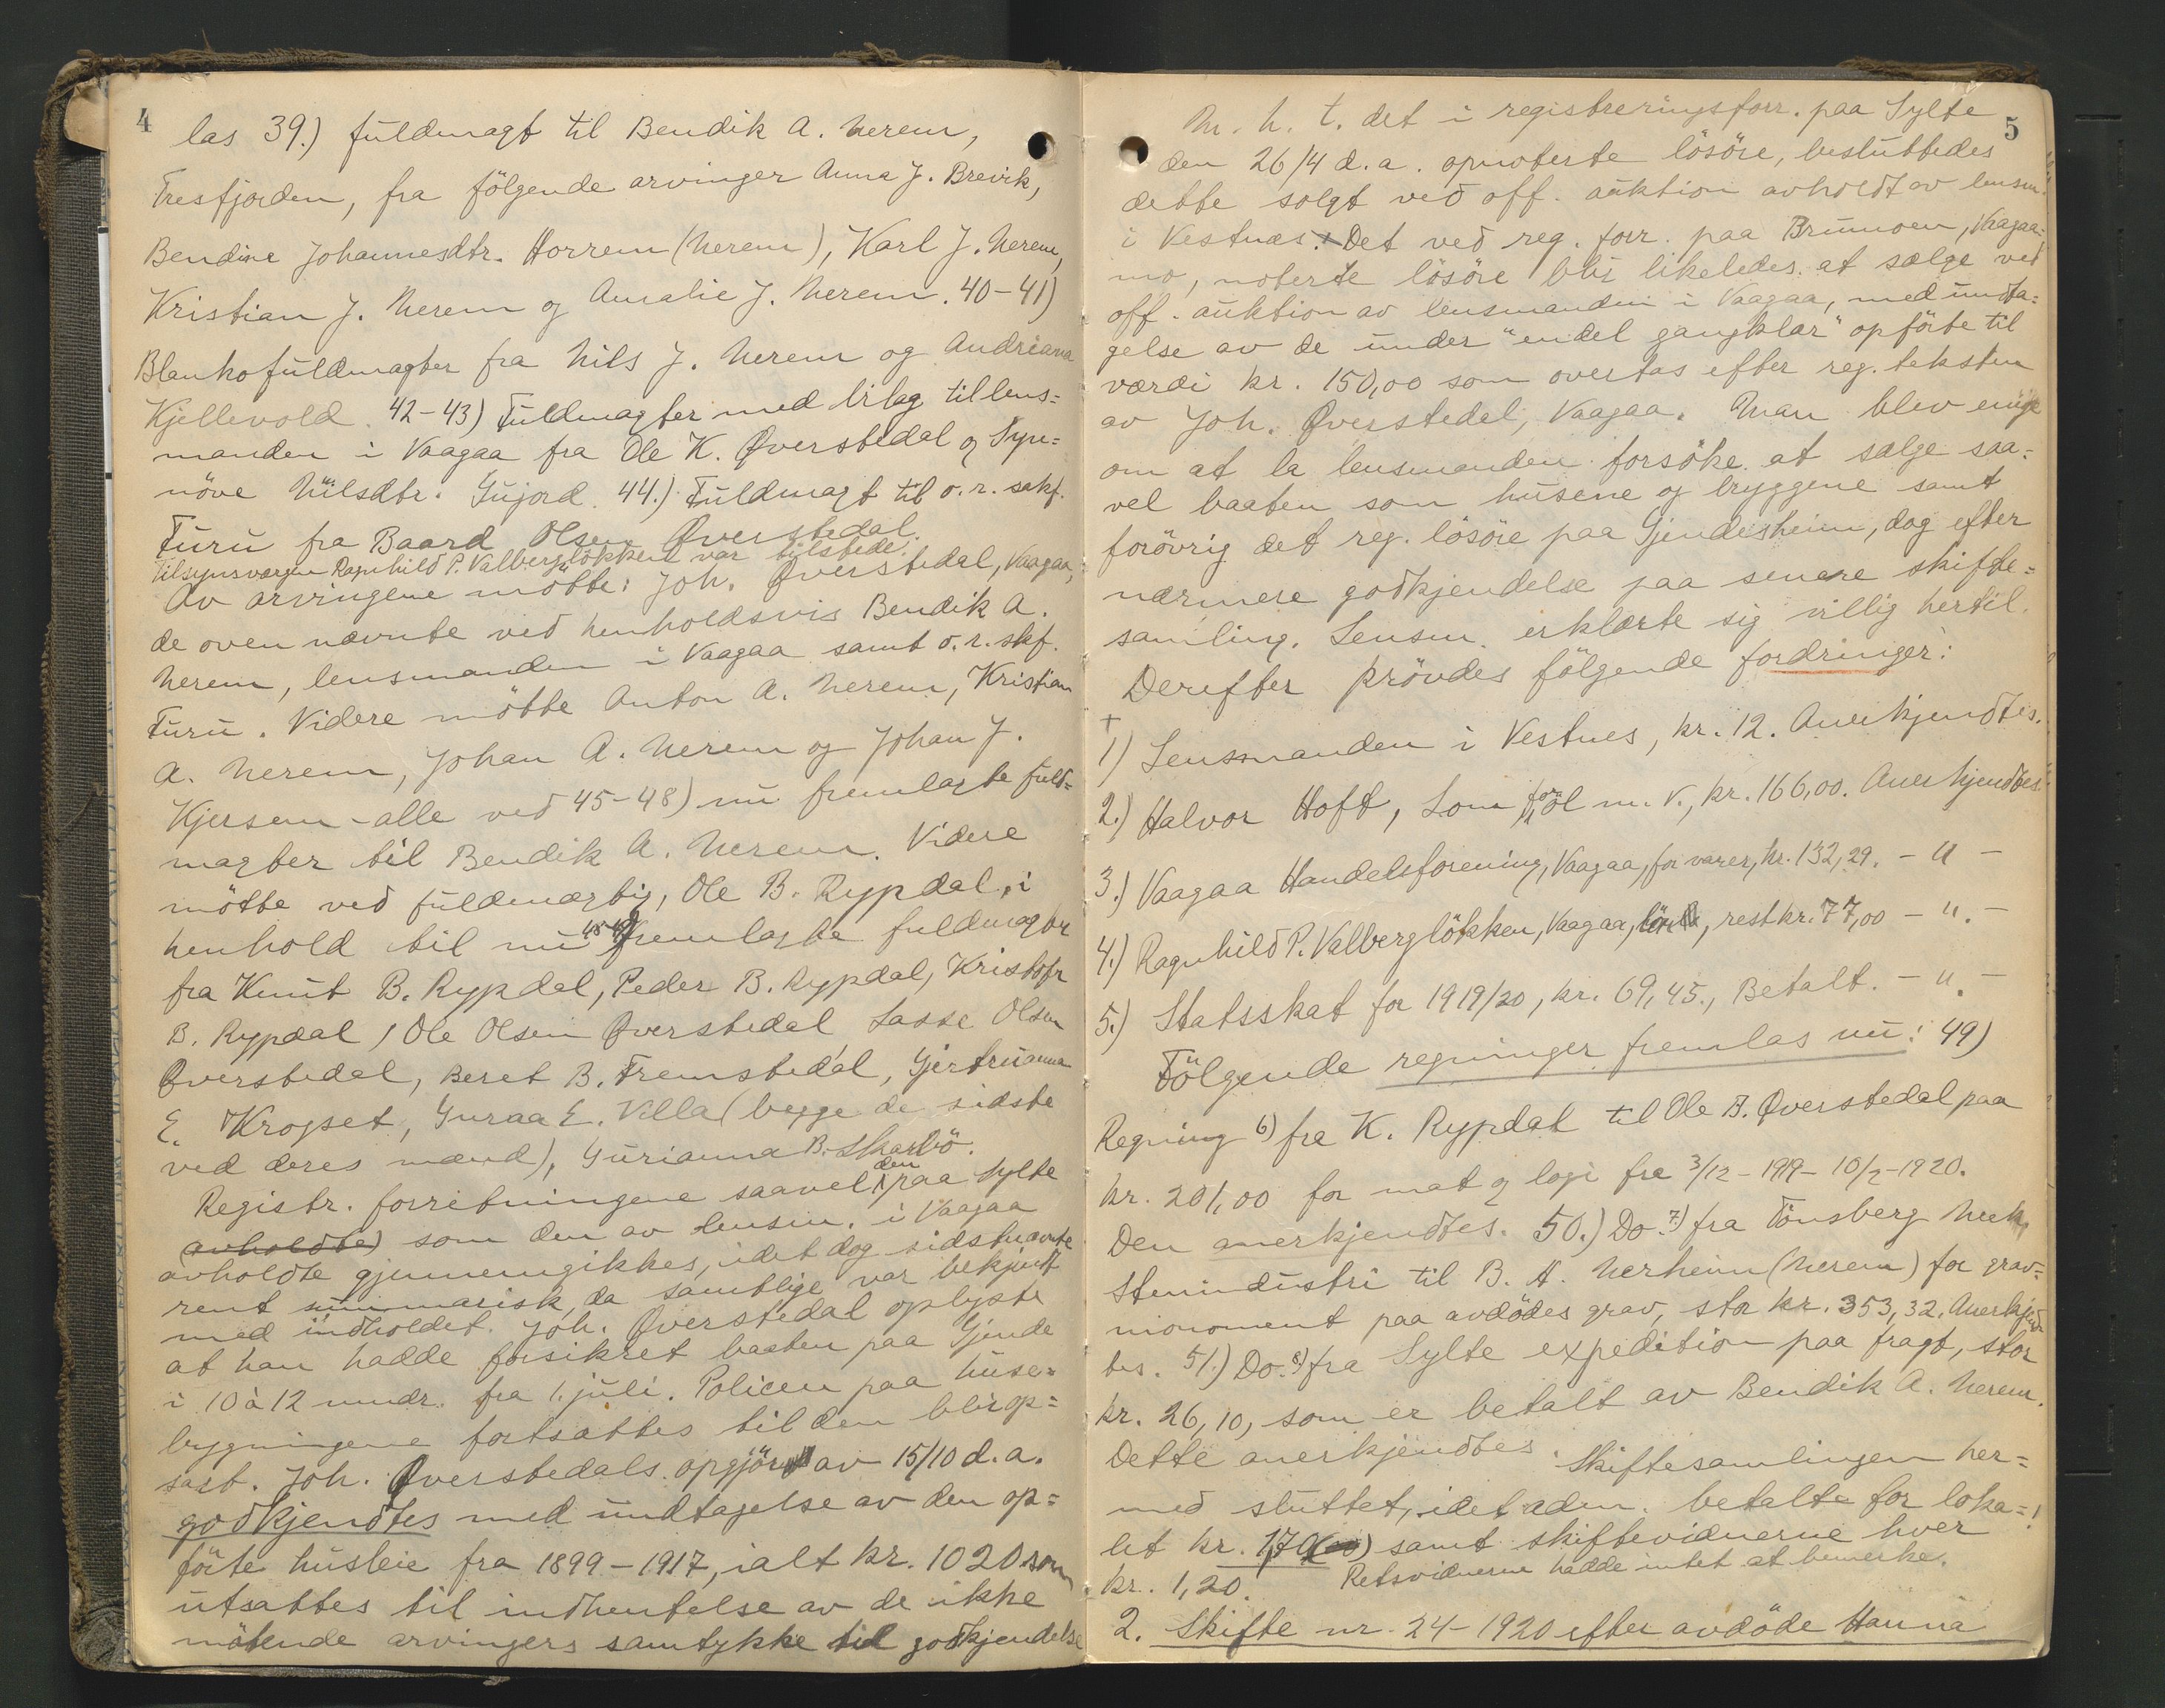 4
las 39.) fuldmagt til Bendik A. Nerem,
Tresfjorden, fra følgende arvinger Anna J. Brevik,
Bendine Johannesdtr. Horrem (Nerem), Karl J. Nerem,
Kristian J. Nerem og Amalie J. Nerem. 40-41)
Blankofuldmagter fra Nils J. Nerem og Andriana
Kjellevold. 42-43) Fuldmagter med bilag til lens=
manden i Vaagaa fra Ole K. Øverstedal og Syn=
növe Nilsdtr. Gujord. 44.) Fuldmagt til o.r. sakf.
Furu fra Baard Olsen Øverstedal.
Tilsynsvergen Ragnhild P. Valberglökken var tilstede.
Av arvingene mötte: Joh. Øverstedal, Vaagaa,
de oven nævnte ved henholdsvis Bendik A.
Nerem, lensmanden i Vaagaa samt o.r. skf.
Furu. Videre mötte Anton A. Nerem, Kristian
A. Nerem, Johan A. Nerem og Johan J.
Kjersem - alle ved 45-48) nu fremlagte fuld=
magter til Bendik A. Nerem. Videre
mötte ved fuldmægtig, Ole B. Rypdal, i
henhold til nu fremlagte fuldmagter
fra Knut B. Rypdal, Peder B. Rypdal, Kristofr
B. Rypdal, Ole Olsen Øverstedal Lasse Olsen
Øverstedal, Beret B. Fremstedal, Gjertrúanna
E. Krogset, Guraa E. Villa (begge de sidste
ved deres mænd), Gurianna B. Skarbö.
Registr. forretningene saavel den paa Sylte
(avholdte) som den av lensm. i Vaagaa
avholdte gjennemgikkes, idet dog sidstnævnte
rent summarisk, da samtlige var bekjendt
med indholdet. Joh. Øverstedal oplyste
at han hadde forsikret baaten paa Gjende
i 10 à 12 mndr. fra 1. juli. Policen paa huse=
bygningene fortsættes til den blir op=
sagt. Joh. Øverstedals opgjör av 15/10 d.a.
godkjendtes med undtagelse av den op=
förte husleie fra 1899-1917, ialt kr. 1020 som
utsattes til indhentelse av de ikke
mötende arvingers samtykke til godkjendelse
5
M. h. t. det i registreringsforr. paa Sylte
den 26/4 d.a. opnoterte lösöre, besluttedes
dette solgt ved off. auktion avholdt av lensm.
i Vestnæs. Det ved reg. forr. paa Brumoen, Vaagaa=
mo, noterte lösöre blir likeledes at sælge ved
off. auktion av lensmanden i Vaagaa, med undta=
gelse av de under "endel gangklær" opförte til
værdi kr. 150,00 som overtas efter reg. taksten
av Joh. Øverstedal, Vaagaa. Man blev enige
om at la lensmanden forsöke at sælge saa=
vel baaten som husene og bryggene samt
forövrig det reg. lösöre paa Gjendesheim, dog efter
nærmere godkjendelse paa senere skifte=
samling. Lensm. erklærte sig villig hertil.
Derefter prövdes fölgende fordringer:
1) Lensmanden i Vestnes, kr. 12. Anerkjendtes.
2.) Halvor Hoft, Lom for öl m. v., kr. 166,00. Anerkjendtes.
3.) Vaagaa Handelsforening, Vaagaa, for varer, kr. 132,29. - " -
4.) Ragnhild P. Valberglökken, Vaagaa, lön, rest kr. 77,00 - ". -
5.) Statsskat for 1919/20, kr. 69,45., Betalt. - ". -
Fölgende regninger fremlas nu: 49)
Regning 6) fra K. Rypdal til Ole B. Øverstedal paa
kr. 201,00 for mat og logi fra 3/12-1919- 10/2-1920.
Den anerkjendtes. 50.) Do. 7) fra Tönsberg mek.
Stenindustri til B. A. Nerheim (Nerem) for grav=
monoment paa avdödes grav, stor kr. 353,32. Anerkjend
tes. 51.) Do. 8) fra Sylte expedition paa fragt, stor
kr. 26,10, som er betalt av Bendik A. Nerem.
Dette anerkjendtes. Skiftesamlingen her=
med sluttet, idet adm. betalte for loka=
let kr. 1,70 samt skiftevidnerne hver
kr. 1,20. Retsvidnerne hadde intet at bemerke.
2. Skifte nr. 24-1920 efter avdöde Hanna